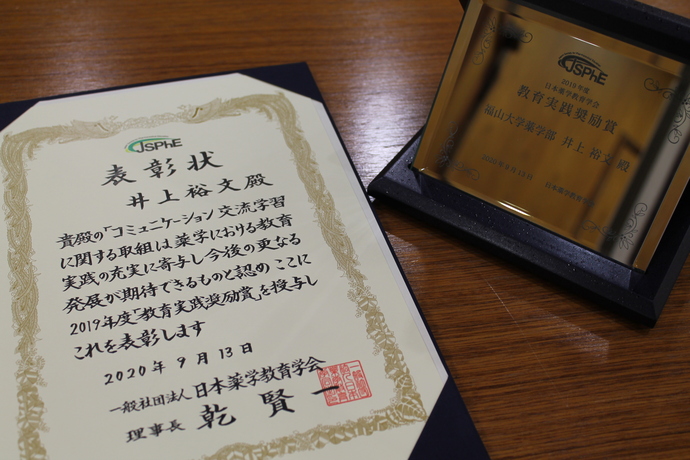 JSPhE
表彰状
井上裕文殿
貴殿の「コミュニケーション」交流学習
に関する取組は薬学における教育
実践の充実に寄与し今後の更なる
発展が期待できるものと認め ここに
2019年度「教育実践奨励賞」を授与し
これを表彰します
2020年9月13日
一般社団法人 日本薬学教育学会
理事長 乾 賢一
JSPhE
2019年度
日本薬学教育学会
教育実践奨励賞
福山大学薬学部 井上 裕文 殿
2020年9月13日
日本薬学教育学会